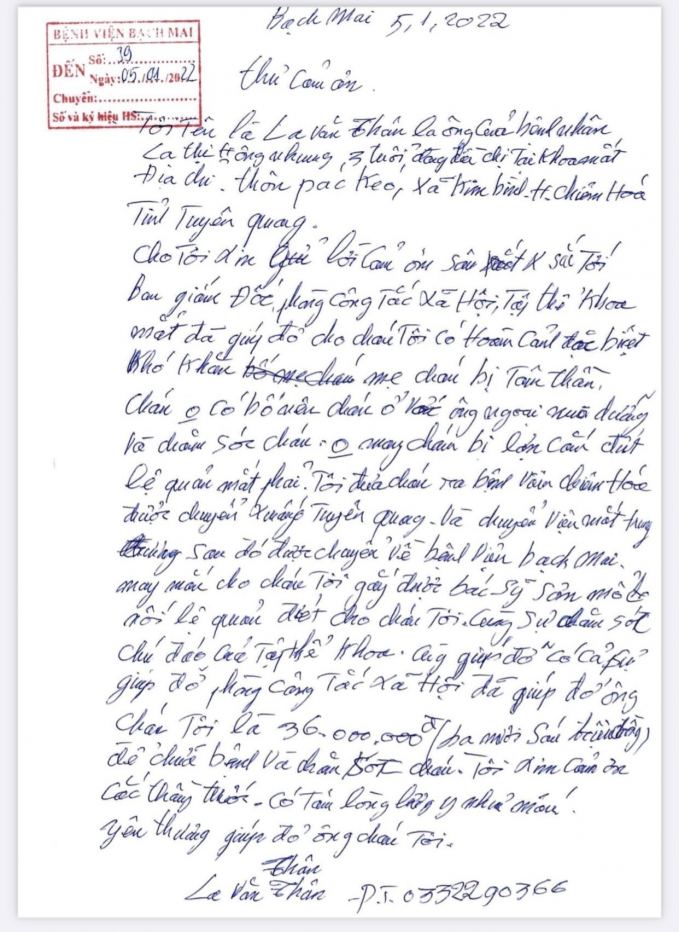 Bạch Mai 5,1,2022
BỆNH VIỆN BẠCH MAI
ĐẾN Số: 39
Ngày: 05/01/2022
Chuyển:
Số và ký hiệu HS:
thư Cảm ơn.
Tôi Tên là La Văn Thân là ông Của bệnh nhân
La thị Hồng nhung, 3 tuổi đang điều trị Tại Khoa mắt
Địa chỉ. thôn pác Kéo, Xã Kim bình - H. chiêm Hoá
Tỉnh Tuyên quang.
Cho Tôi xin gửi lời Cảm ơn sâu sắc Tới
Ban giám Đốc, phòng Công Tác Xã Hội, Tập thể Khoa
mắt đã giúp đỡ cho cháu Tôi Có Hoàn Cảnh đặc biệt
Khó Khăn bố mẹ cháu mẹ cháu bị Tâm thần,
Cháu o Có bố nên cháu ở với ông ngoại nuôi dưỡng
Và chăm sóc cháu. o may cháu bị lợn Cắn đứt
lệ quản mắt phải. Tôi đưa cháu ra bệnh Viện chiêm Hóa
được chuyển xuống Tuyên quang. Và chuyển Viện mắt trung
ương sau đó được chuyển về bệnh Viện bạch Mai.
may mắn cho cháu Tôi gặp được bác sỹ sản mổ
nối lệ quản đứt cho cháu Tôi. Cùng Sự chăm sóc
chu đáo Của Tập thể Khoa. Cùng giúp đỡ Có Cả Sự
giúp đỡ phòng Công Tác Xã Hội đã giúp đỡ ông
Cháu Tôi là 36.000.000đ (ba mươi Sáu triệu đồng)
để chữa bệnh Và chăm Sóc cháu. Tôi xin Cảm ơn
Các thầy thuốc. Có Tấm lòng lương y như mẫu.
yêu thương giúp đỡ ông cháu Tôi.
Thân
La Văn Thân - P.T. 0332290366